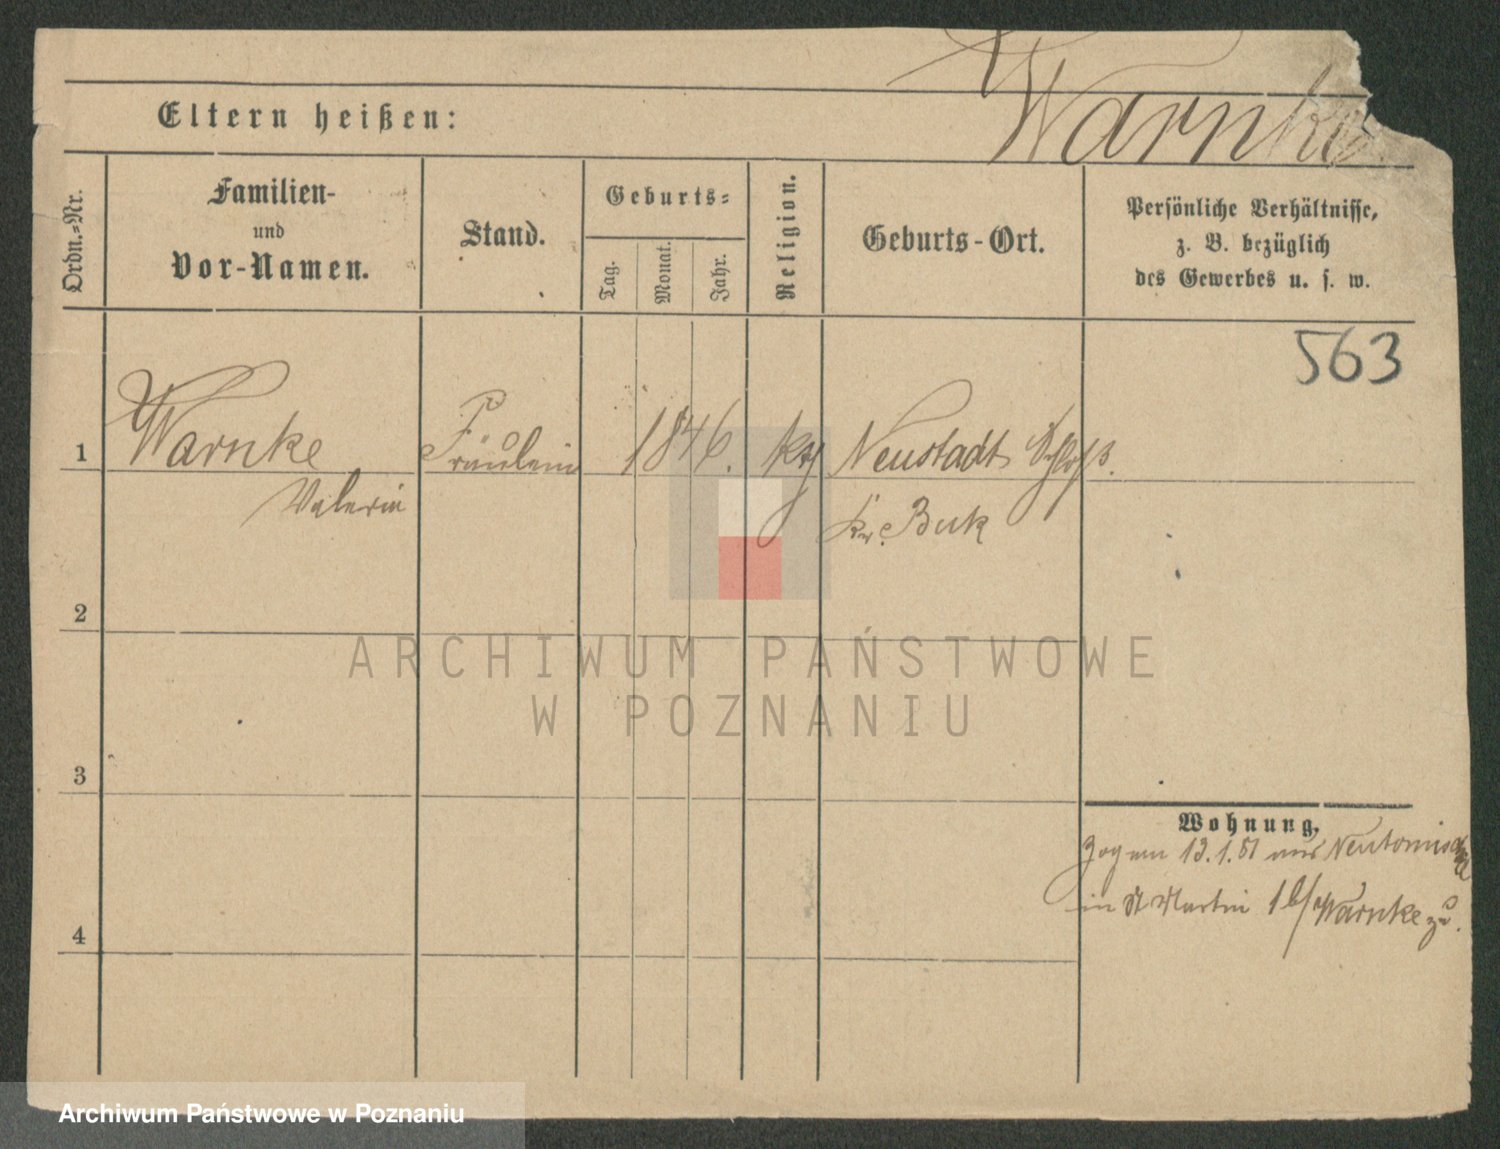 Warnke
Eltern heißen:
Ordn.-Nr.
Familien-
und
Vor-Namen.
Stand.
Geburts-
Tag.
Monat.
Jahr.
Religion.
Geburts-Ort.
Persönliche Verhältnisse,
z. B. bezüglich
des Gewerbes u. s. w.
563
1 Warnke Fräulein 1846. Neustadt Schloß.
Valerie Kr. Buk
2
3
4
ARCHIWUM PAŃSTWOWE
W POZNANIU
Wohnung.
Zog am 13.1.81 aus Neutomischel
in St Martin Warnke zu.
Archiwum Państwowe w Poznaniu